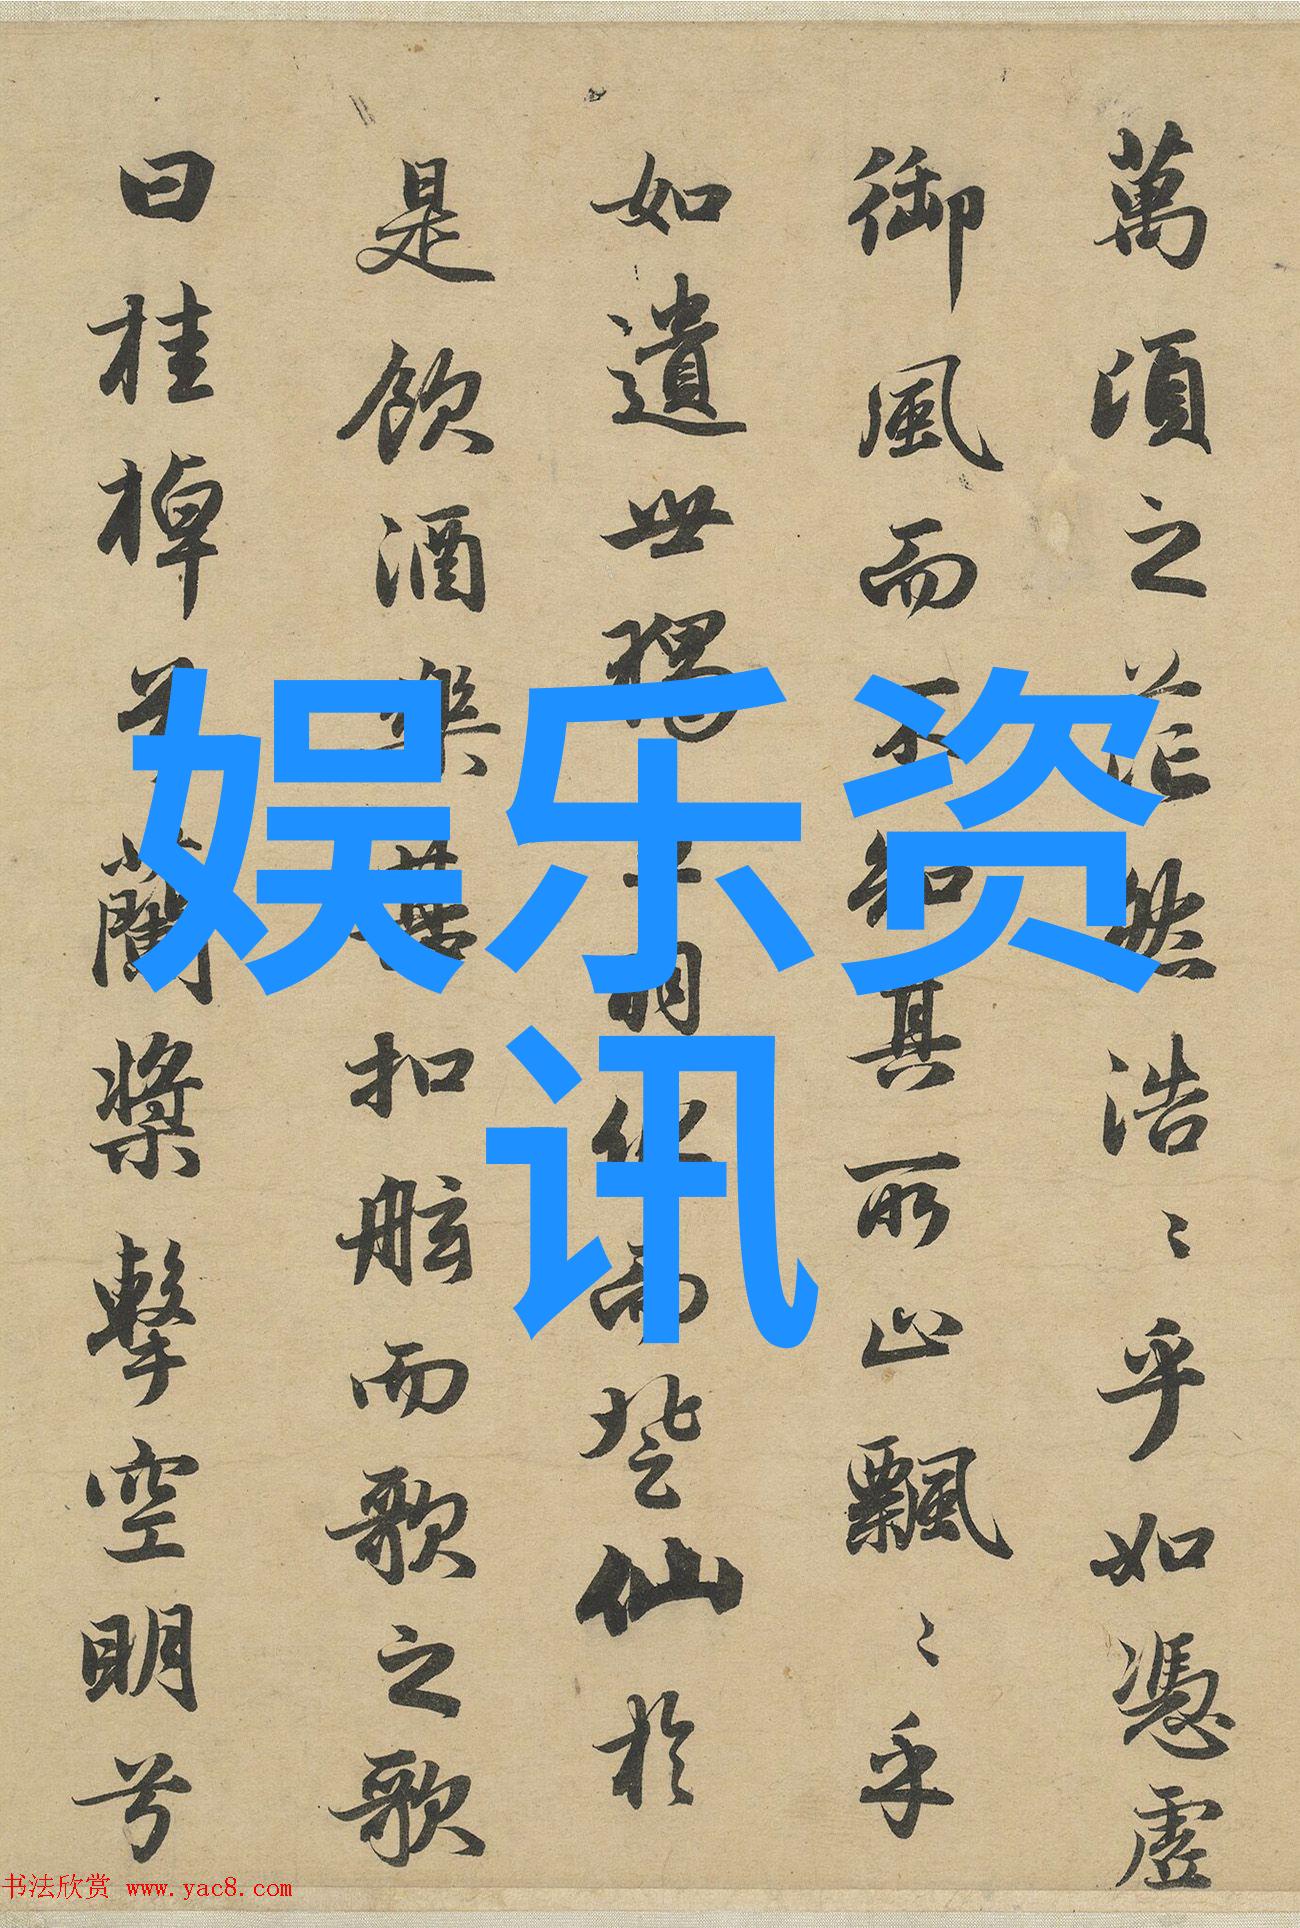 萬頃之茫然浩〻乎如憑虛
御風而不知其所止飄〻乎
如遺世獨立羽化而登仙於
是飲酒樂甚扣舷而歌之歌
曰桂棹兮蘭槳擊空明兮
娱乐资
讯
书法欣赏 www.yac8.com